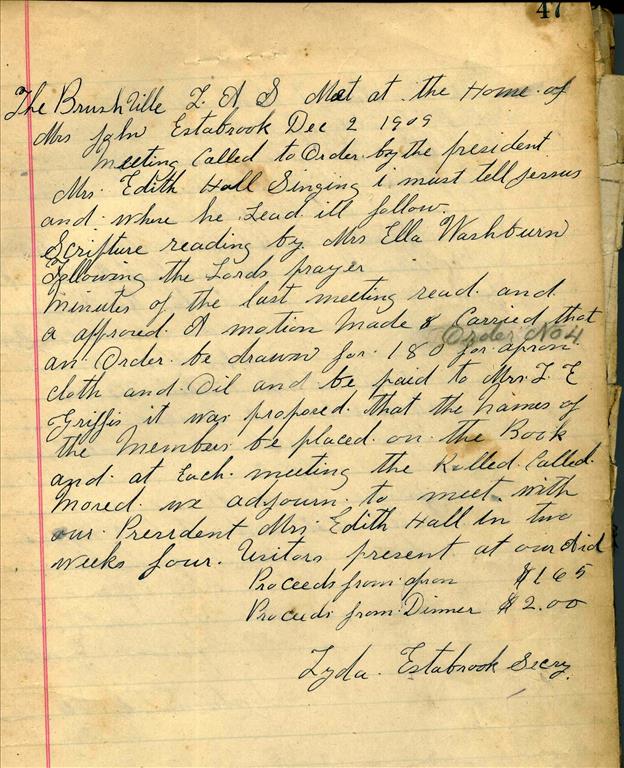 47
The Brushville L. A. S Met at the Home of
Mrs John Estabrook Dec 2 1909
Meeting Called to Order by the president
Mrs. Edith Hall Singing i must tell jesus
and where he Lead ill follow.
Scripture reading by Mrs Ella Washburn
Following the Lords prayer
Minutes of the last meeting read and
a approved. A motion Made & Carried that
Order No 4
an Order be drawn for 1 80 for apron
cloth and Oil and be paid to Mrs. L E
Griffis it was proposed that the names of
the Members be placed on the Book
and at Each meeting the Rolled Called.
Moved we adjourn to meet with
our President Mrs. Edith Hall in two
weeks four Visitors present at our Aid
Proceeds from apron $1 65
Proceeds from Dinner $2.00
Lyda Estabrook Secry.